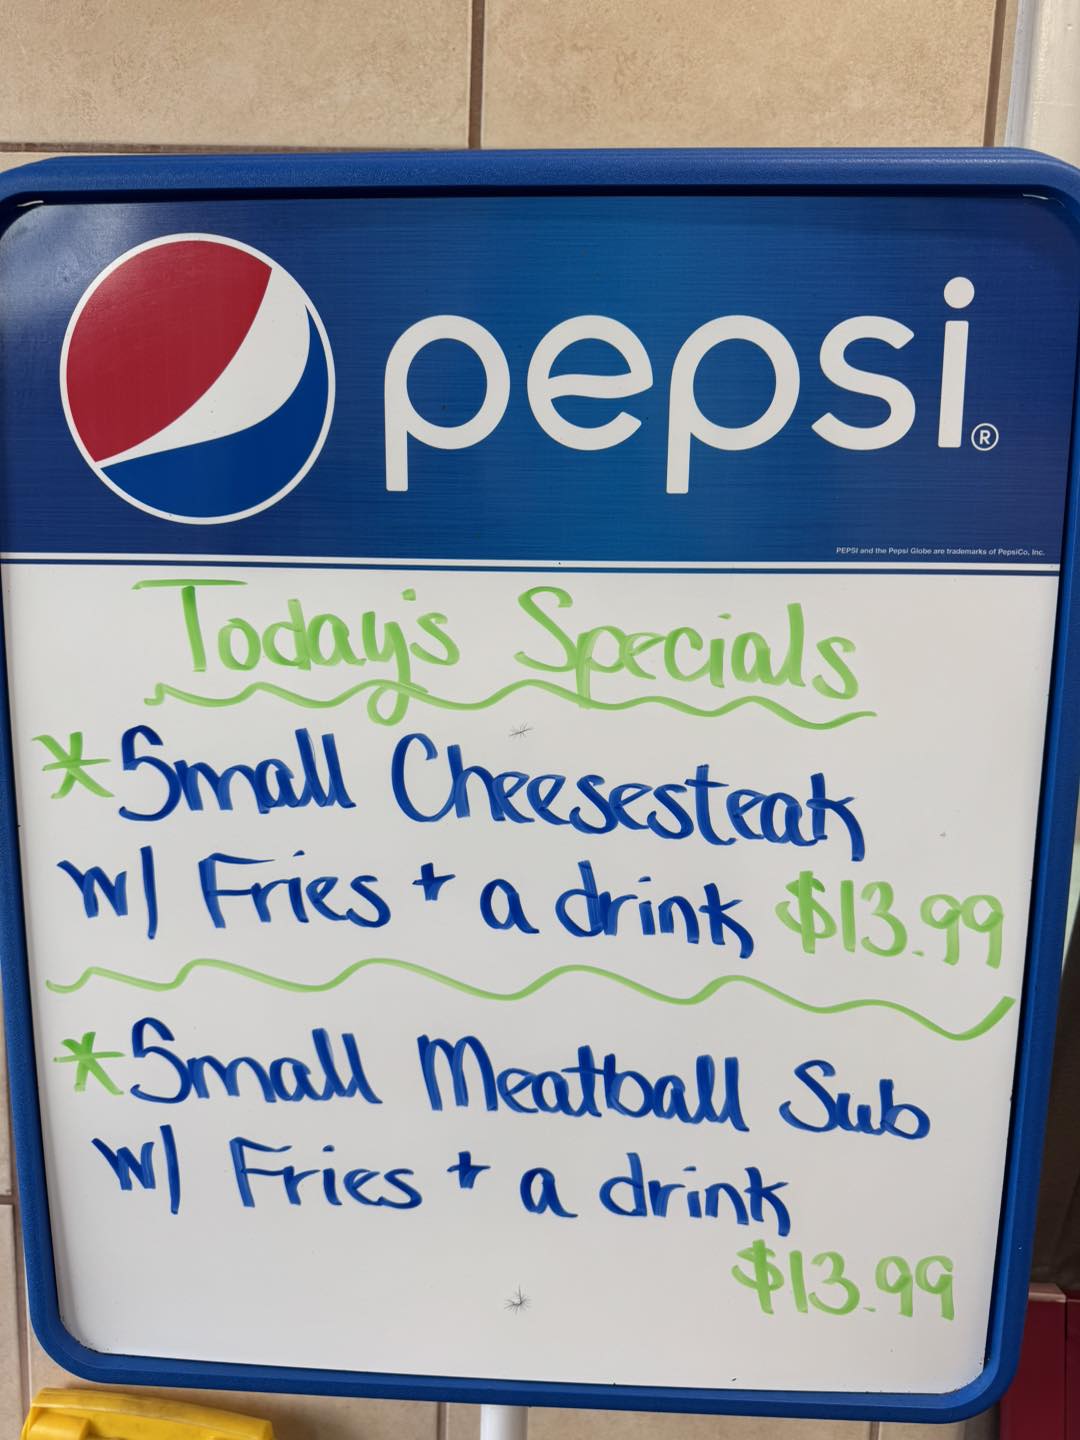 pepsi®
PEPSI and the Pepsi Globe are trademarks of PepsiCo, Inc.
Today's Specials
*Small Cheesesteak
w/ Fries + a drink $13.99
*Small Meatball Sub
w/ Fries + a drink
$13.99